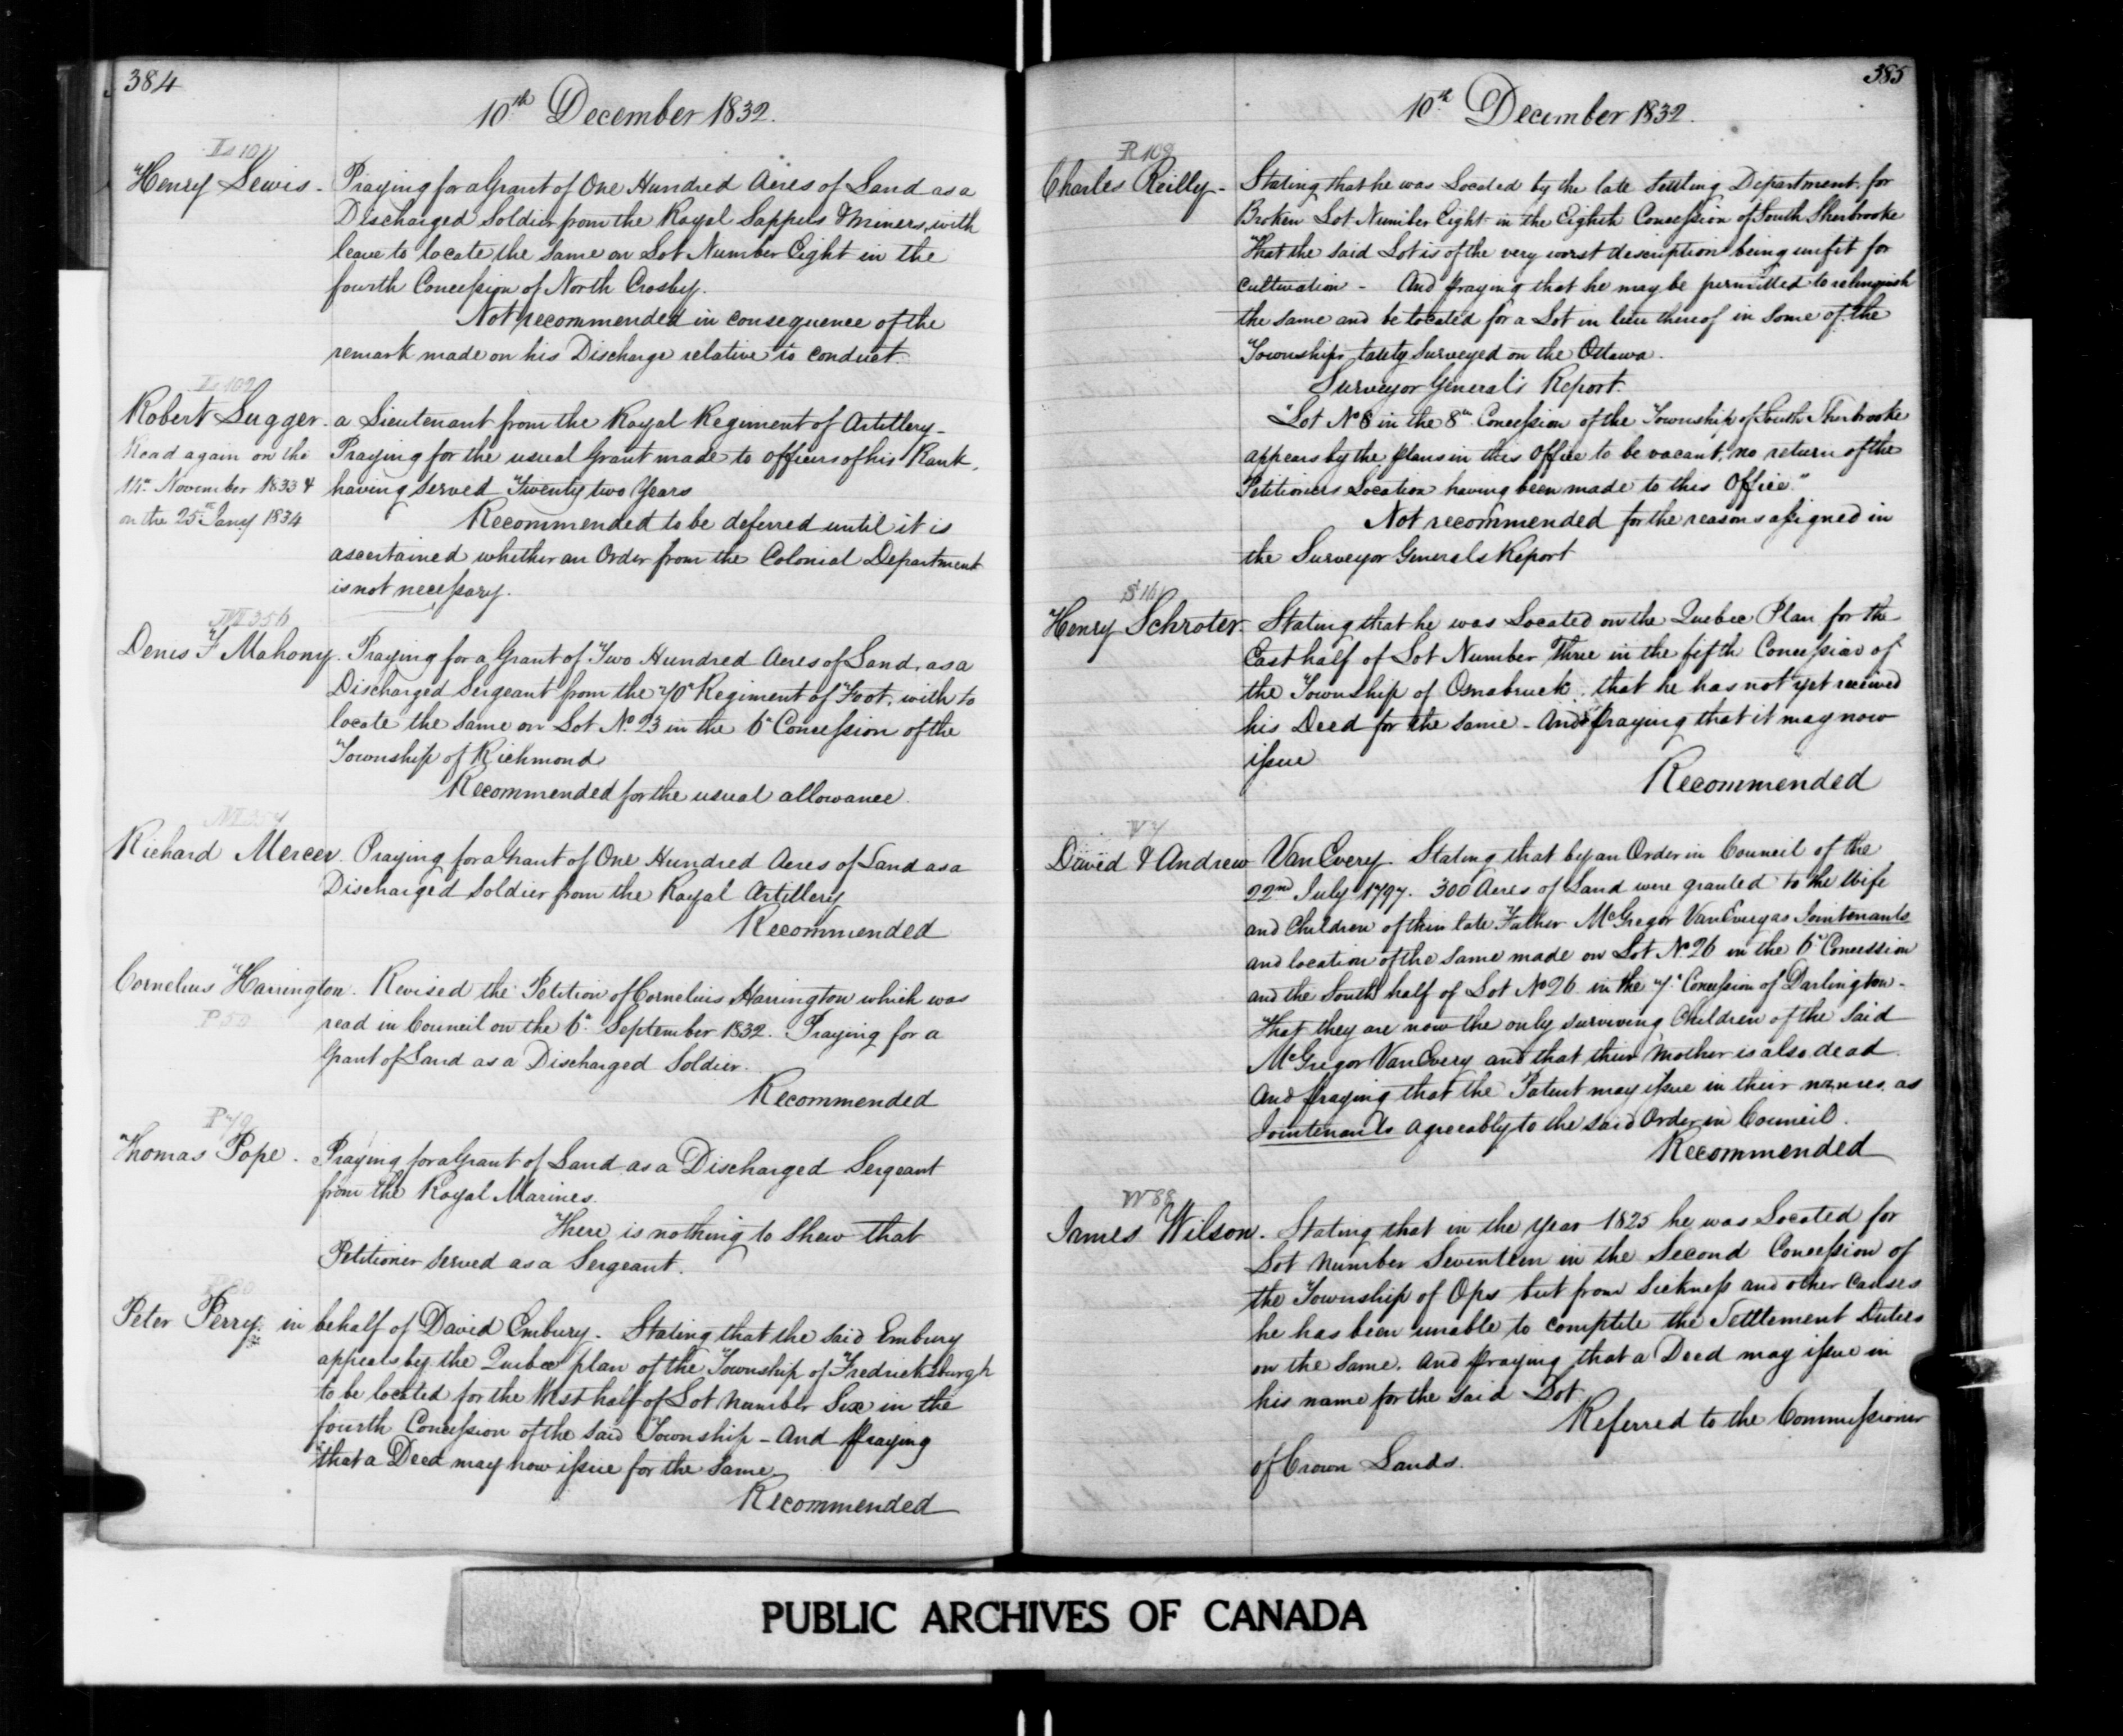 384
10th December 1832.
L 101
Henry Lewis - Praying for a Grant of One Hundred Acres of Land as a
Discharged Soldier from the Royal Sappers & Miners, with
leave to locate the same on Lot Number Eight in the
fourth Concession of North Crosby.
Not recommended in consequence of the
remark made on his Discharge relative to conduct.
L 102
Robert Lugger - a Lieutenant from the Royal Regiment of Artillery -
Read again on the
14th November 1833 &
on the 25th Jany 1834
Praying for the usual Grant made to officers of his Rank,
having served Twenty two Years
Recommended to be deferred until it is
ascertained whether an Order from the Colonial Department
is not necessary.
M 356
Denis F Mahony. Praying for a Grant of Two Hundred Acres of Land, as a
Discharged Sergeant from the 70th Regiment of Foot, with to
locate the same on Lot No. 23 in the 6th Concession of the
Township of Richmond
Recommended for the usual allowance.
Richard Mercer. Praying for a Grant of One Hundred Acres of Land as a
Discharged Soldier from the Royal Artillery
Recommended
Cornelius Harrington. Revised the Petition of Cornelius Harrington which was
read in Council on the 6th September 1832. Praying for a
Grant of Land as a Discharged Soldier.
P 50
Recommended
P 79
Thomas Pope. Praying for a Grant of Land as a Discharged Sergeant
from the Royal Marines.
There is nothing to Shew that
Petitioner served as a Sergeant.
Peter Perry. in behalf of David Embury - Stating that the said Embury
appears by the Quebec plan of the Township of Fredricksburgh
to be located for the West half of Lot Number Six in the
fourth Concession of the said Township - And praying
that a Deed may now issue for the Same
Recommended
385
10th December 1832.
R 108
Charles Reilly - Stating that he was Located by the late Settling Department for
Broken Lot Number Eight in the Eighth Concession of South Sherbrooke
That the said Lot is of the very worst description being unfit for
cultivation - And praying that he may be permitted to relinquish
the same and be located for a Lot in lieu thereof in some of the
Townships lately Surveyed on the Ottawa.
Surveyor General's Report.
"Lot No 8 in the 8th Concession of the Township of South Sherbrooke
appears by the plans in this Office to be vacant, no return of the
Petitioners Location having been made to this Office"
Not recommended for the reasons assigned in
the Surveyor Generals Report
Henry Schroter. Stating that he was Located on the Quebec Plan for the
East half of Lot Number Three in the fifth Concession of
the Township of Osnabruck, that he has not yet received
his Deed for the same - And praying that it may now
issue
Recommended
V 7
David & Andrew VanEvery. Stating that by an Order in Council of the
22nd July 1797. 300 Acres of Land were granted to the Wife
and Children of their late Father McGregor VanEvery as Jointenants
and location of the same made on Lot No. 26 in the 6th Concession
and the South half of Lot No 26 in the 7th Concession of Darlington -
That they are now the only surviving Children of the said
McGregor VanEvery and that their Mother is also dead
And praying that the Patent may issue in their names as
Jointenants agreeably to the said Order in Council.
Recommended
W 88
James Wilson. Stating that in the year 1825 he was Located for
Lot Number Seventeen in the Second Concession of
the Township of Ops but from Sickness and other causes
he has been unable to complete the Settlement Duties
on the same. And praying that a Deed may issue in
his name for the said Lot.
Referred to the Commissioner
of Crown Lands.
PUBLIC ARCHIVES OF CANADA